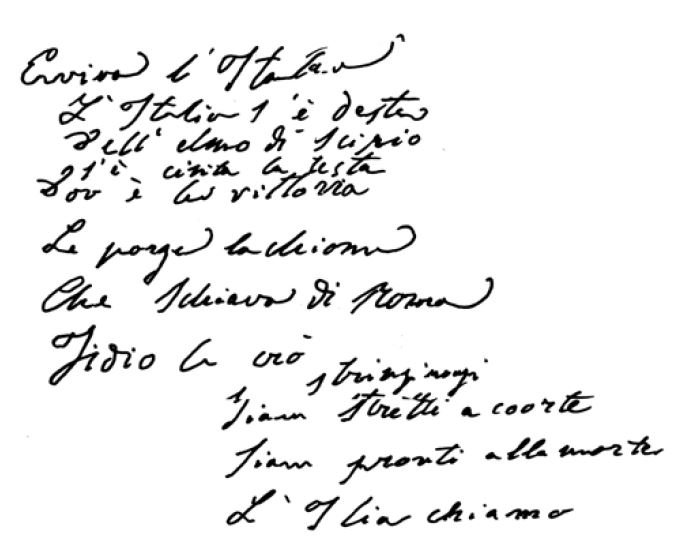 Evviva l'Italia
L'Italia s'è desta
Dell'elmo di Scipio
s'è cinta la testa
Dov'è la vittoria
Le porge la chioma
Che schiava di Roma
Iddio la creò
stringiamoci
siam stretti a coorte
siam pronti alla morte
L'Itlia chiamò